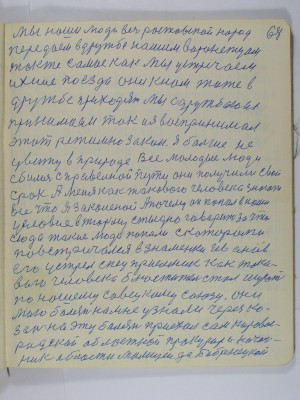 Мы наши люди весь ростовской народ 68
передаем в дружбе нашим Воронежцам
также само как мы устречаем
ихние поезда они к нам также в
дружбе приходят мы с дружбой их
принимаем так и я воспринимал
этот режимно Законн. Я больше не
увижу в природе Все молодые люди
сбился с правельной Пути они получили свой
срок А меня как такового человека знают
все что Я Законой А почему он попал в наши
условия в тюрьму, стыдно говорить за это
сюда такие люди попали с которыми
повстречался в знаменки 12 дней
Его устрел спец приемник как така-
вого человека блюстители стал шутит
по нашему советскому союзу, они
мого болят на мне узнали через ко-
зак на эту болять приехал сам Кирово-
градской областной прокурор и началь-
ник области милиции да Бобринецкой